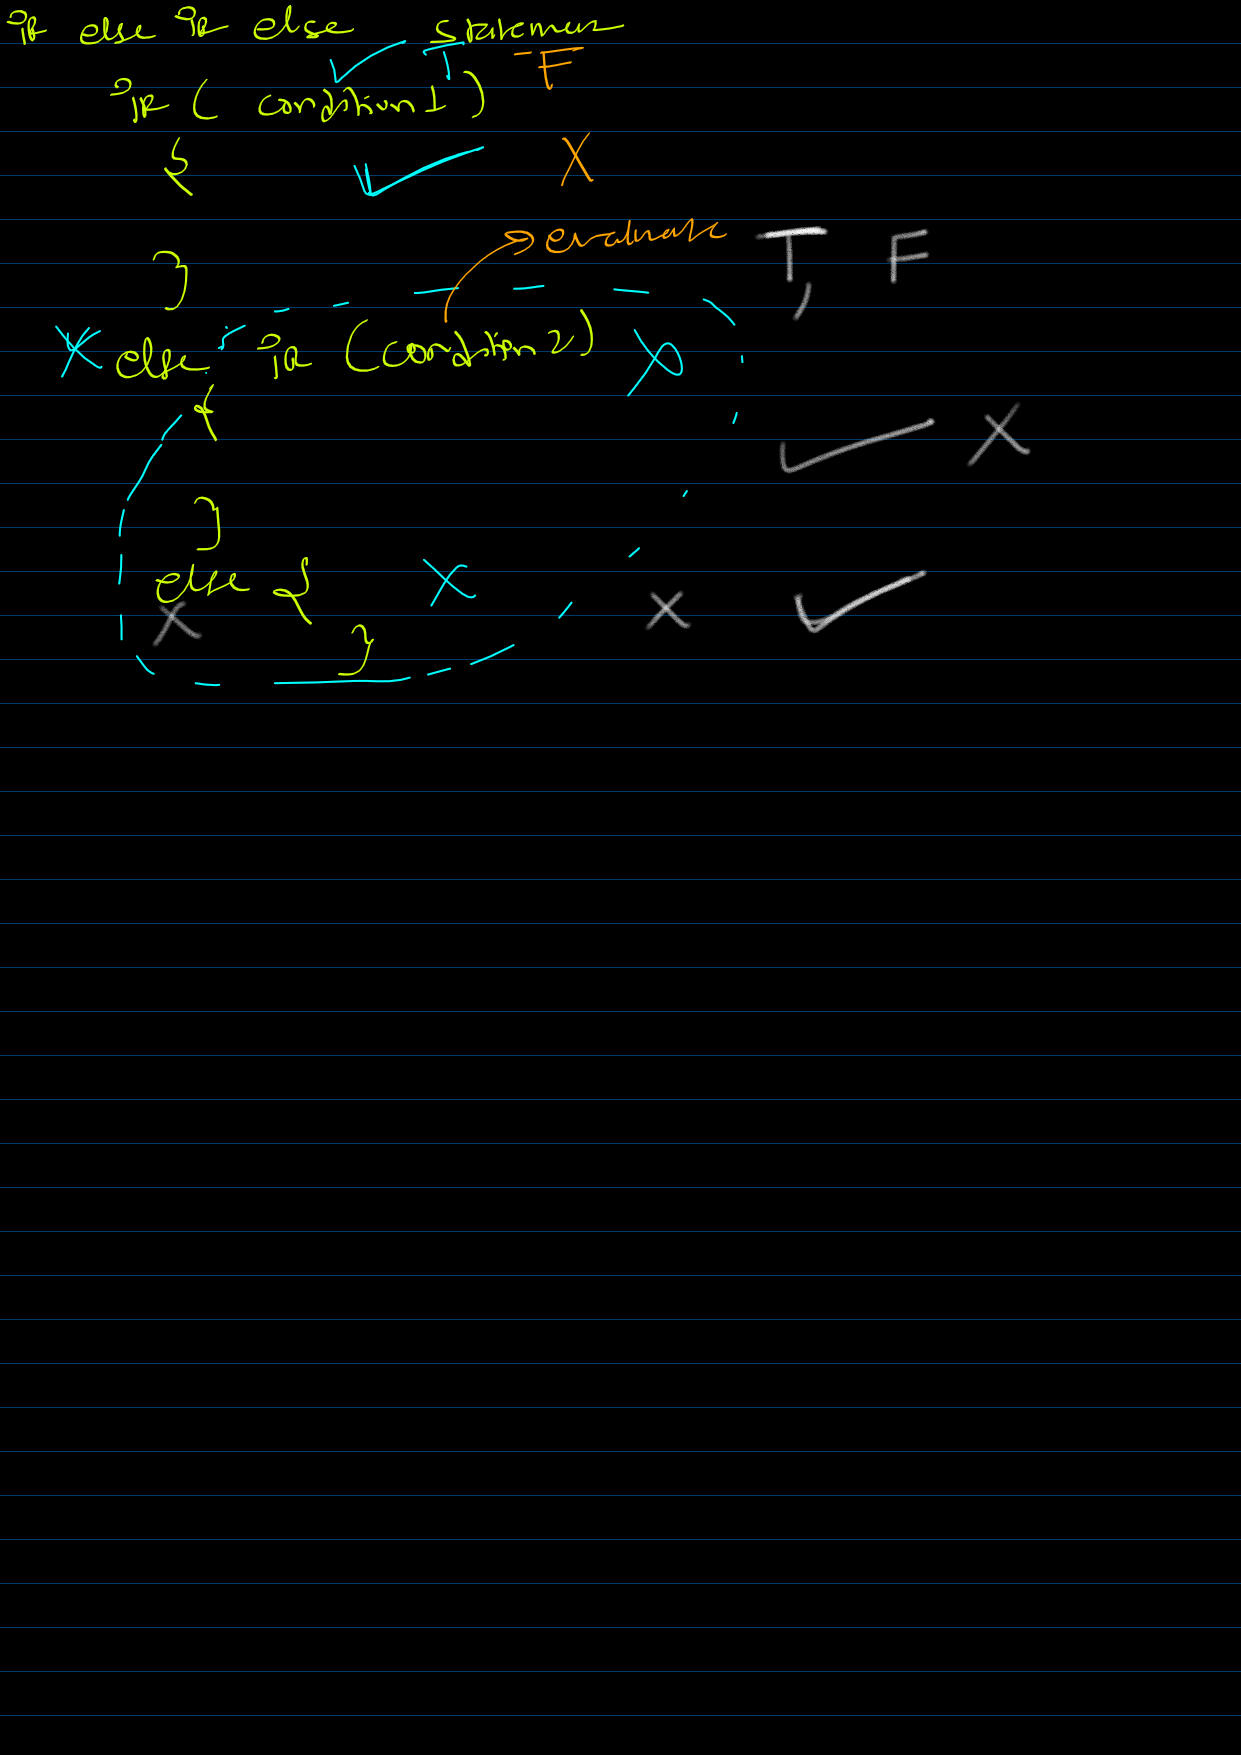 if else if else statement
T F
if ( condition 1 )
{
evaluate T, F
}
else if (condition 2)
{
}
else {
}